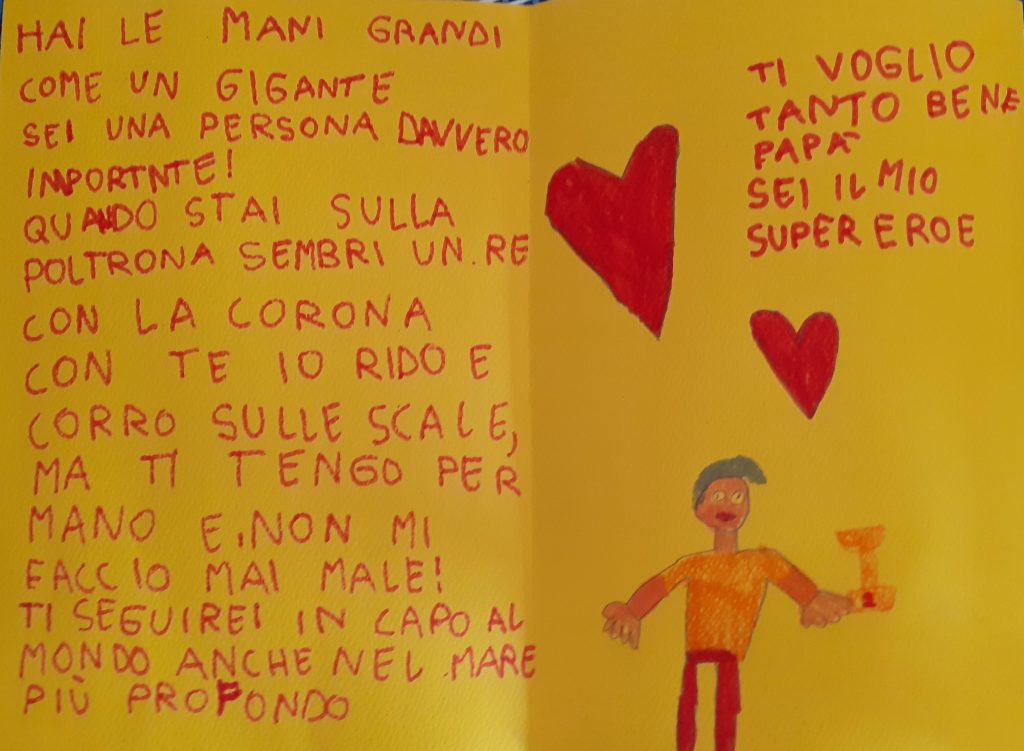 HAI LE MANI GRANDI
COME UN GIGANTE
SEI UNA PERSONA DAVVERO
IMPORTNTE!
QUANDO STAI SULLA
POLTRONA SEMBRI UN.RE
CON LA CORONA
CON TE IO RIDO E
CORRO SULLE SCALE,
MA TI TENGO PER
MANO E,NON MI
FACCIO MAI MALE!
TI SEGUIREI IN CAPO AL
MONDO ANCHE NEL MARE
PIÙ PROFONDO
TI VOGLIO
TANTO BENE
PAPÀ
SEI IL MIO
SUPER EROE
1